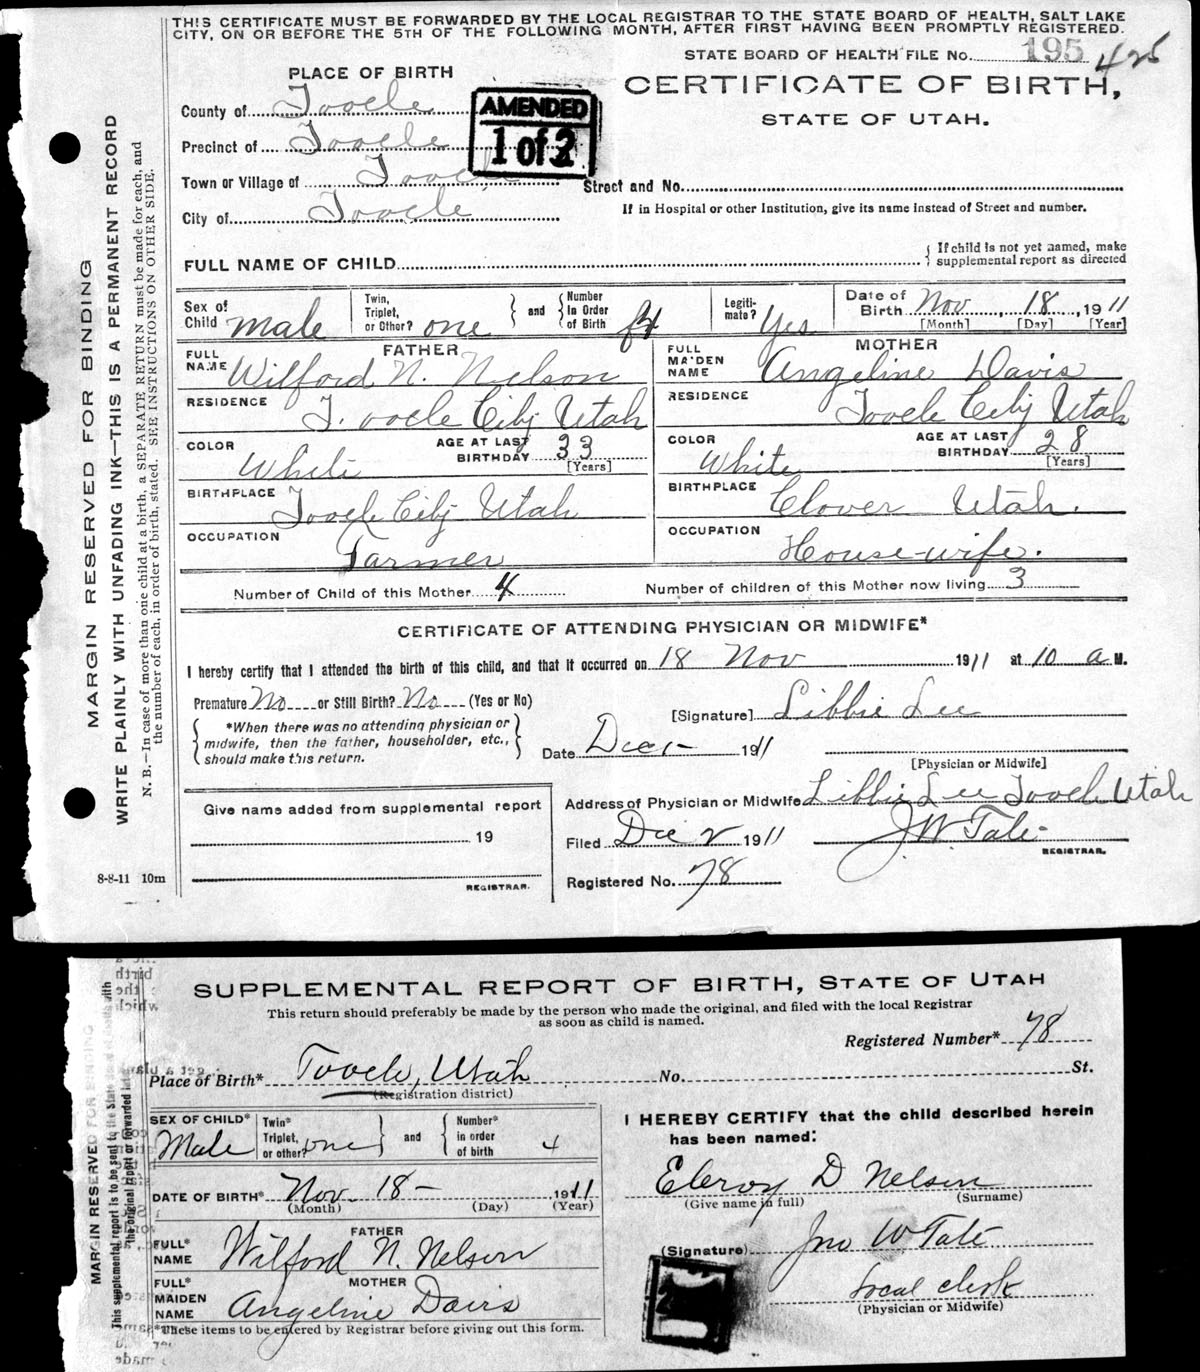 THIS CERTIFICATE MUST BE FORWARDED BY THE LOCAL REGISTRAR TO THE STATE BOARD OF HEALTH, SALT LAKE
CITY, ON OR BEFORE THE 5TH OF THE FOLLOWING MONTH, AFTER FIRST HAVING BEEN PROMPTLY REGISTERED.
STATE BOARD OF HEALTH FILE No. 195 425
PLACE OF BIRTH
CERTIFICATE OF BIRTH,
STATE OF UTAH.
AMENDED
1 of 2
County of Tooele
Precinct of Tooele
Town or Village of Tooele
Street and No.
City of Tooele
If in Hospital or other Institution, give its name instead of Street and number.
FULL NAME OF CHILD
{ If child is not yet named, make
supplemental report as directed
Sex of Child male
Twin, Triplet, or Other? one } and { Number In Order of Birth 4
Legiti-mate? Yes
Date of Birth Nov, 18, 1911
[Month] [Day] [Year]
FATHER
FULL NAME Wilford N. Nelson
RESIDENCE Tooele City Utah
COLOR White
AGE AT LAST BIRTHDAY 33
[Years]
BIRTHPLACE Tooele City Utah
OCCUPATION Farmer
MOTHER
FULL MAIDEN NAME Angeline Davis
RESIDENCE Tooele City Utah
COLOR White
AGE AT LAST BIRTHDAY 28
[Years]
BIRTHPLACE Clover Utah.
OCCUPATION House-wife.
Number of Child of this Mother 4
Number of children of this Mother now living 3
CERTIFICATE OF ATTENDING PHYSICIAN OR MIDWIFE*
I hereby certify that I attended the birth of this child, and that it occurred on 18 Nov 1911 at 10 a M.
Premature No or Still Birth? No (Yes or No)
{ *When there was no attending physician or
midwife, then the father, householder, etc.,
should make this return. }
[Signature] Libbie Lee
Date Dec 1- 1911
[Physician or Midwife]
Give name added from supplemental report
19
REGISTRAR.
Address of Physician or Midwife Libbie Lee Tooele Utah
Filed Dec 2 1911
J.W. Tate
REGISTRAR.
Registered No. 78
8-8-11 10m
MARGIN RESERVED FOR BINDING
WRITE PLAINLY WITH UNFADING INK—THIS IS A PERMANENT RECORD
N. B.—In case of more than one child at a birth, a SEPARATE RETURN must be made for each, and
the number of each, in order of birth, stated. SEE INSTRUCTIONS ON OTHER SIDE.
SUPPLEMENTAL REPORT OF BIRTH, STATE OF UTAH
This return should preferably be made by the person who made the original, and filed with the local Registrar
as soon as child is named.
Registered Number* 78
Place of Birth* Tooele, Utah No. St.
(Registration district)
SEX OF CHILD* Male
Twin* Triplet, or other? one } and { Number* in order of birth 4
DATE OF BIRTH* Nov. 18- 1911
(Month) (Day) (Year)
FATHER
FULL* NAME Wilford N. Nelson
MOTHER
FULL* MAIDEN NAME Angeline Davis
*These items to be entered by Registrar before giving out this form.
I HEREBY CERTIFY that the child described herein
has been named:
Elroy D Nelson
(Give name in full) (Surname)
(Signature) Jno W Tate
Local clerk
(Physician or Midwife)
MARGIN RESERVED FOR BINDING
This supplemental report is to be sent to the State
the original report or forwarded